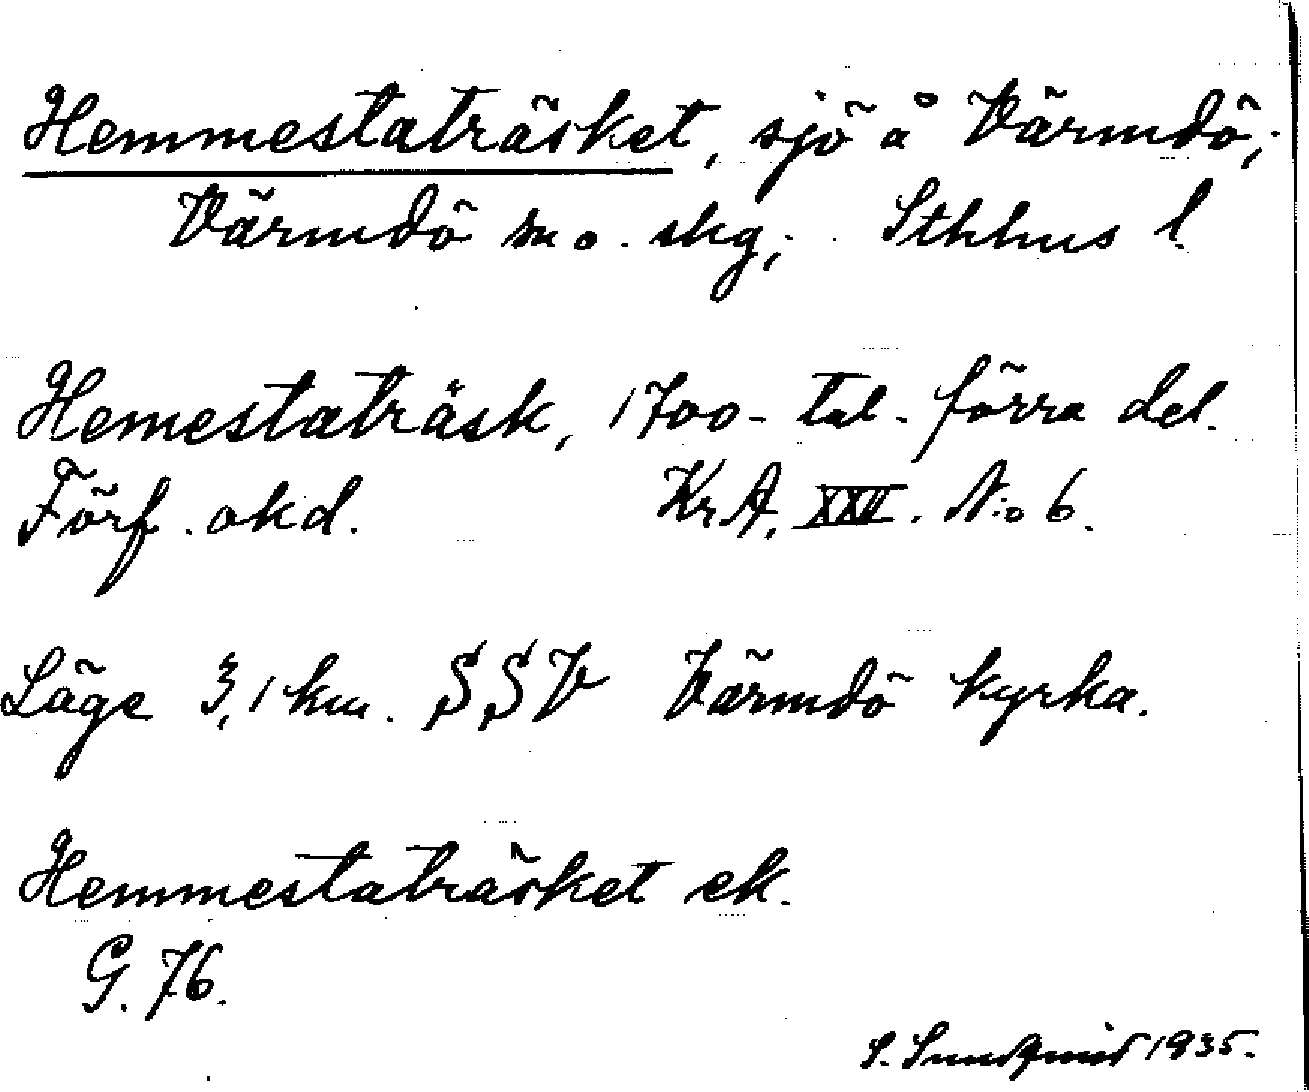 Hemmestaträsket, sjö å Värmdö,
Värmdö sn o. skg, Sthlms l.
Hemestaträsk, 1700-tal. förra del.
Förf. okd. Kr.A. XXV. N:o 6.
Läge 3,1 km. SSV Värmdö kyrka.
Hemmestaträsket ek.
G. 76.
S. 1935.